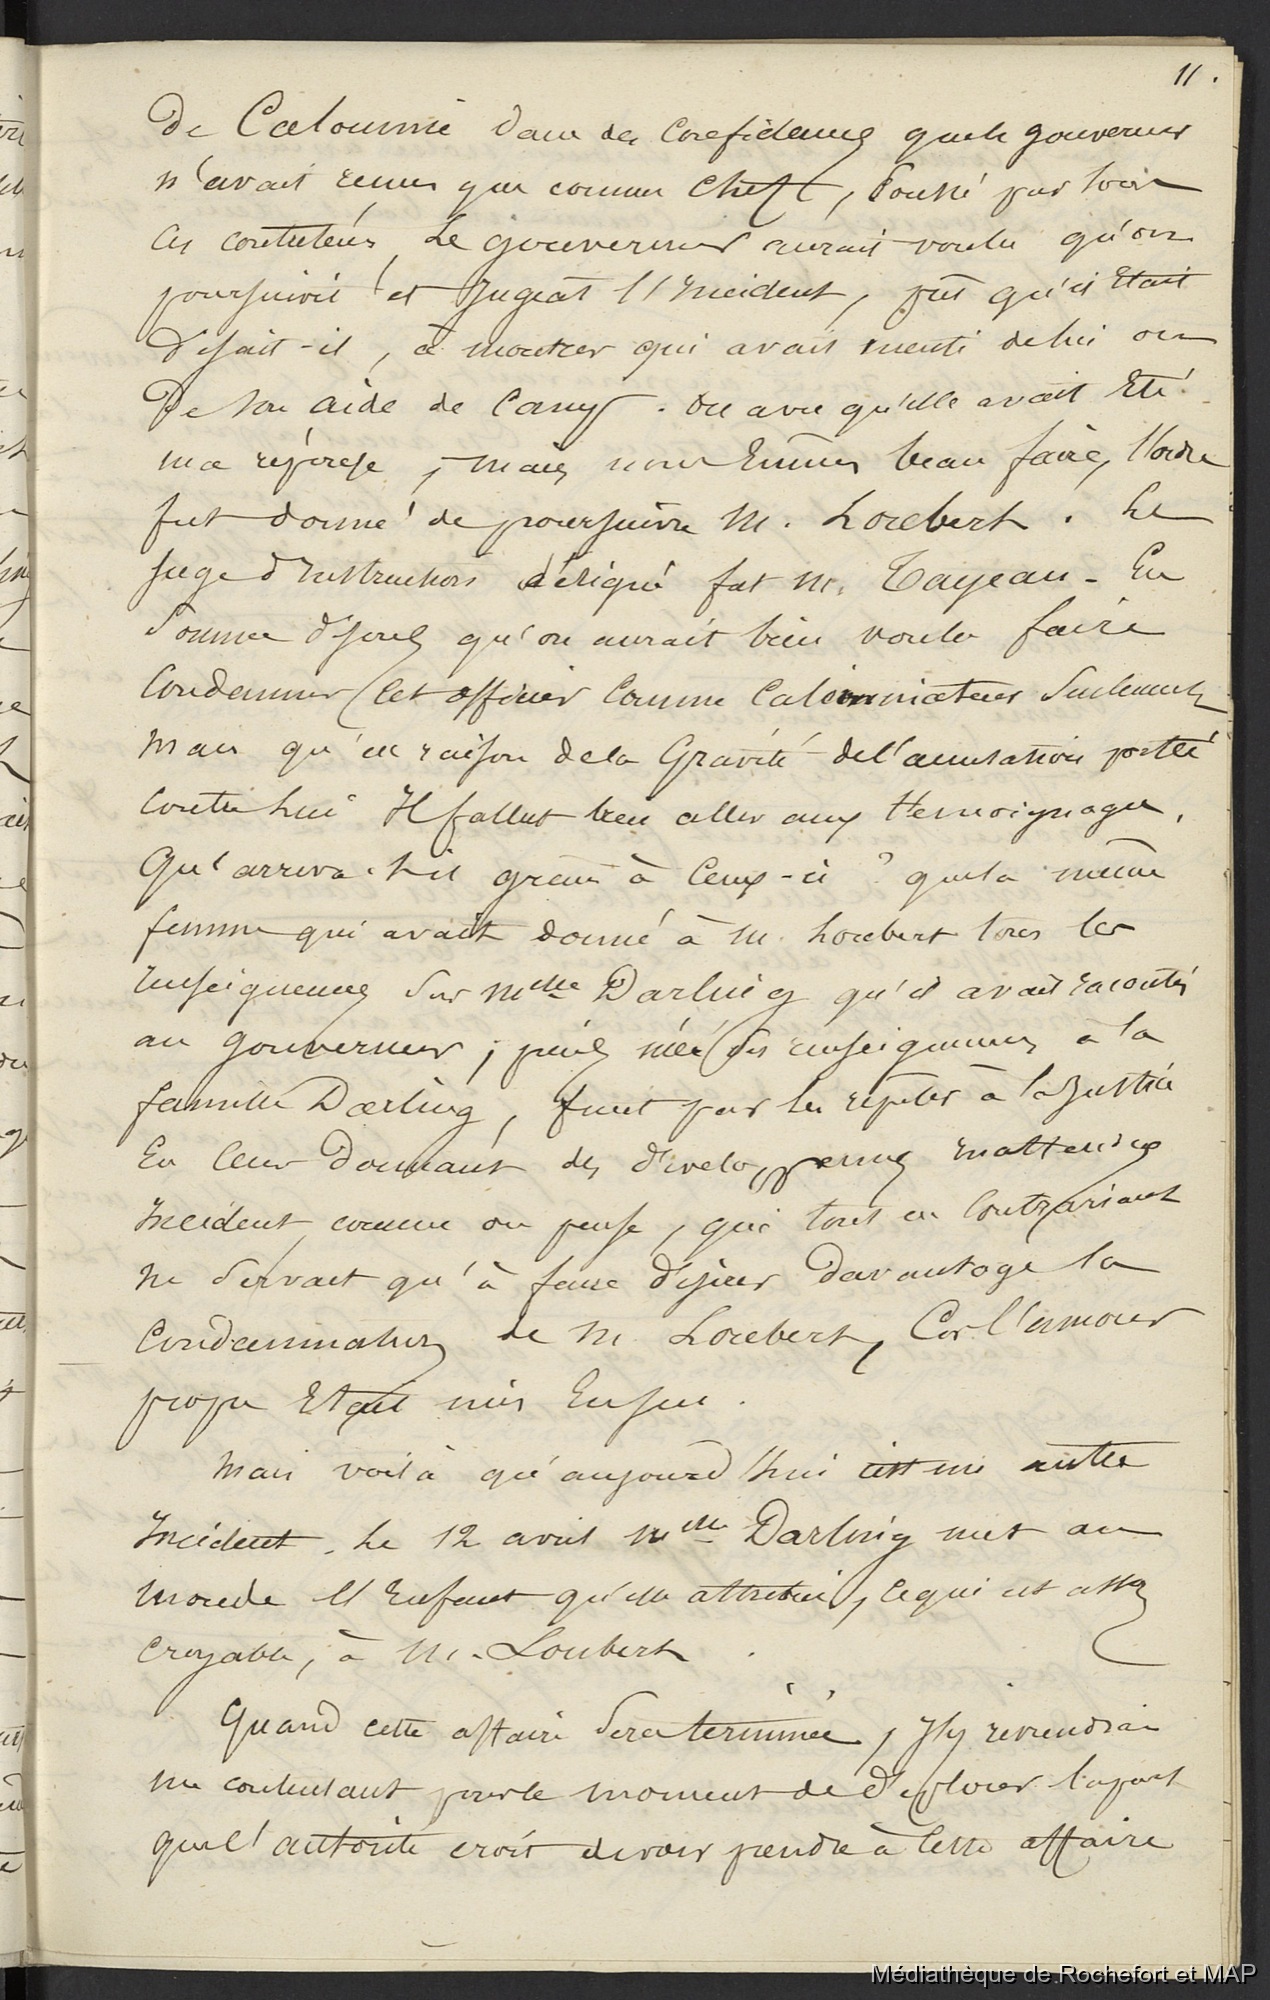 11.
De Calomnie dans des Confidences que le gouverneur
n'avait reçues que comme Chef, Poussé par
ces contrariétés, Le gouverneur aurait voulu qu'on
poursuivit et Jugeat l'Incident, prêt qu'il Etait
disait-il, à montrer qui avait menti de lui ou
De Son aide de Camp. On a vu qu'elle avait Eté
ma réponse, mais nous Eumes beau faire, l'ordre
fut donné de poursuivre M. Loubert. Le
Juge d'Instruction désigné fut M. Tayeau - En
Somme disons qu'on aurait bien voulu faire
Condamner Cet officier Comme Calomniateur Seulement
mais qu'en raison de la Gravité de l'accusation portée
Contre Lui Il fallut bien aller aux témoignages.
Qu'arriva-t-il grâce à Ceux-ci ? que la même
femme qui avait donné à M. Loubert tous les
renseignements Sur Melle Darling qu'il avait racontés
au gouverneur, puis nié ses renseignements à la
famille Darling, finit par les répéter à la Justice
En leur Donnant des développements inattendus
Incident comme on pense, qui tout en Contrariant
ne Servait qu'à faire désirer Davantage la
Condamnation de M. Loubert, Car l'amour
propre Etait mis En jeu.
Mais voilà qu'aujourd'hui c'est un autre
Incident. Le 12 avril Melle Darling met au
monde l'Enfant qu'elle attribue, ce qui est assez
croyable, à M. Loubert.
Quand cette affaire Sera terminée, J'y reviendrai
me contentant pour le moment de déplorer la part
que l'autorité croit devoir prendre à Cette affaire
Médiathèque de Rochefort et MAP